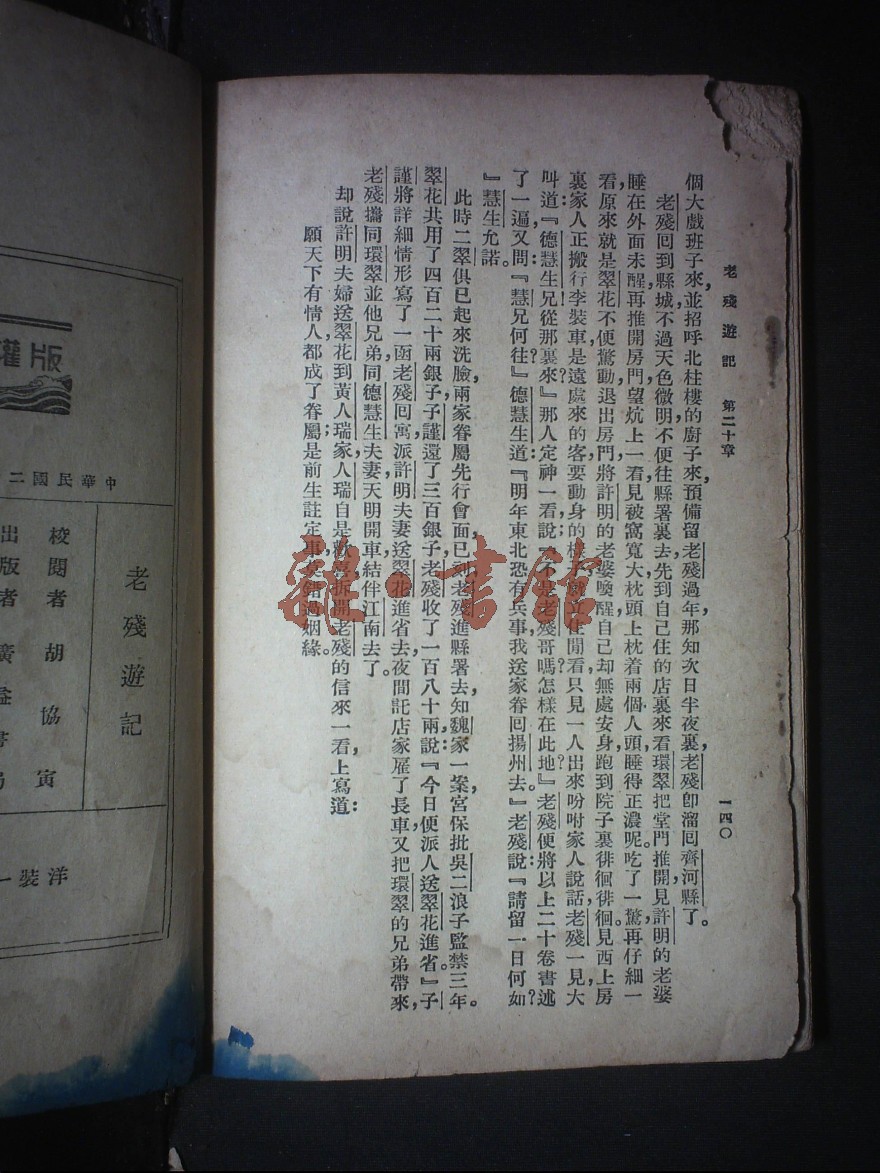 老殘遊記 第二十章 一四〇
個大戲班子來,並招呼北柱樓的廚子來,預備留老殘過年那知次日半夜裏,老殘卽溜囘齊河縣了。
老殘囘到縣城不過天色微明不便往縣署裏去先到自己住的店裏來看環翠把堂門推開,見許明的老婆
睡在外面未醒,再推開房門望炕上一看見被窩寬大枕頭上枕着兩個人頭,睡得正濃呢。吃了一驚,再仔細一
看,原來就是翠花不便驚動,退出房門,將許明的老婆喚醒自己却無處安身,跑到院子裏徘徊徘徊,見西上房
裏家人正搬行李裝車,是遠處來的客要動身的樣子就立住閒看只見一人出來吩咐家人說話老殘一見大
叫道:『德慧生兄從那裏來?』那人定神一看說:『不是老殘哥嗎怎樣在此地?』老殘便將以上二十卷書述
了一遍,又問:『慧兄何往?』德慧生道:『明年東北恐有兵事,我送家眷囘揚州去。』老殘說:『請留一日何如?
』慧生允諾。
此時二翠俱已起來洗臉,兩家眷屬先行會面,已刻老殘進縣署去知魏家一案宮保批吳二浪子監禁三年。
翠花共用了四百二十兩銀子子謹還了三百銀子,老殘收了一百八十兩,說:『今日便派人送翠花進省。』子
謹將詳細情形寫了一函,老殘囘寓,派許明夫妻送翠花進省去,夜間託店家雇了長車又把環翠的兄弟帶來,
老殘攜同環翠並他兄弟同德慧生夫妻天明開車,結伴江南去了。
却說許明夫婦送翠花到黃人瑞家人瑞自是歡喜,拆開老殘的信來一看,上寫道:
願天下有情人,都成了眷屬;是前生註定事,莫錯過姻緣。
版權
中華民國二
老殘遊記
校閱者 胡協寅
出版者 廣益書局
洋裝一
龍·書館